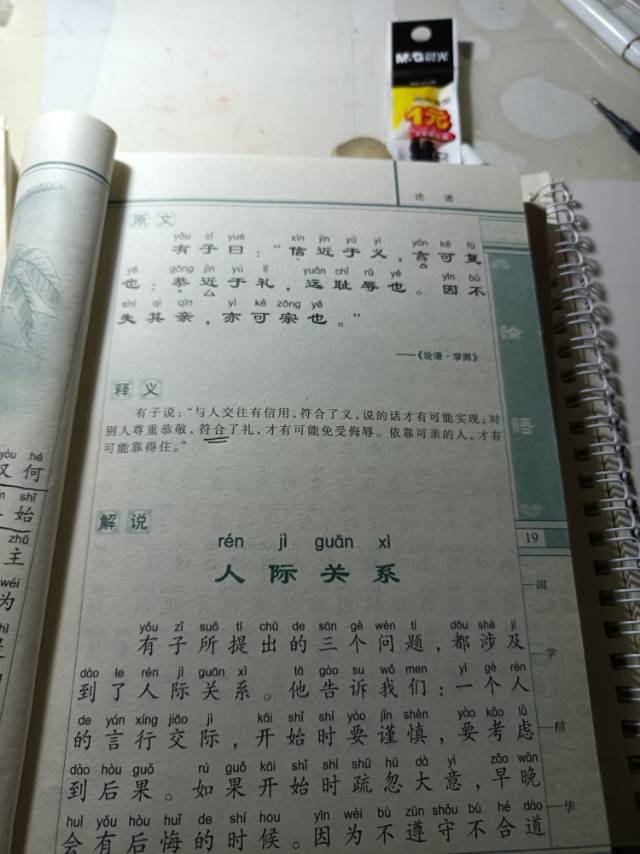 M&G晨光
1元
论语
原文
yǒu zǐ yuē xìn jìn yú yì yán kě fù
有子曰：“信近于义，言可复
yě gōng jìn yú lǐ yuǎn chǐ rǔ yě yīn bù
也；恭近于礼，远耻辱也。因不
shī qí qīn yì kě zōng yě
失其亲，亦可宗也。”
——《论语·学而》
释义
有子说：“与人交往有信用，符合了义，说的话才有可能实现；对
别人尊重恭敬，符合了礼，才有可能免受侮辱。依靠可亲的人，才有
可能靠得住。”
解说
rén jì guān xì
人际关系
yǒu zǐ suǒ tí chū de sān gè wèn tí dōu shè jí
有子所提出的三个问题，都涉及
dào le rén jì guān xì tā gào su wǒ men yí gè rén
到了人际关系。他告诉我们：一个人
de yán xíng jiāo jì kāi shǐ shí yào jǐn shèn yào kǎo lǜ
的言行交际，开始时要谨慎，要考虑
dào hòu guǒ rú guǒ kāi shǐ shí shū hū dà yì zǎo wǎn
到后果。如果开始时疏忽大意，早晚
huì yǒu hòu huǐ de shí hou yīn wèi bù zūn shǒu bù hé dào
会有后悔的时候。因为不遵守不合道
論
語
19
国
学
精
华
yòu hé
又何
shǐ
始
zhǔ
主
wéi
为